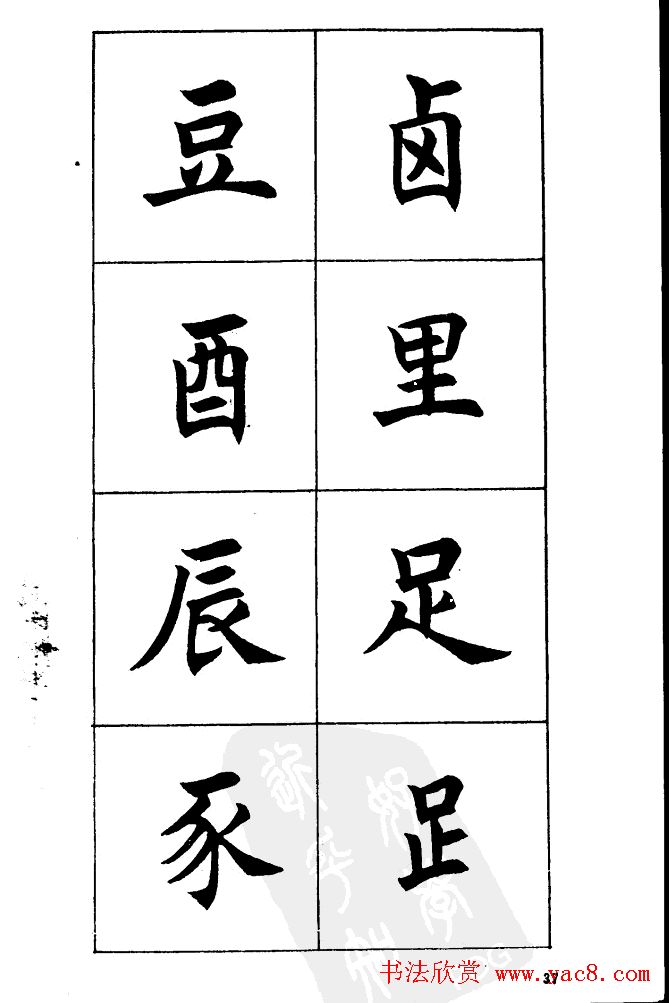 卤里足𧾷
豆酉辰豕
书法欣赏 www.yac8.com
37